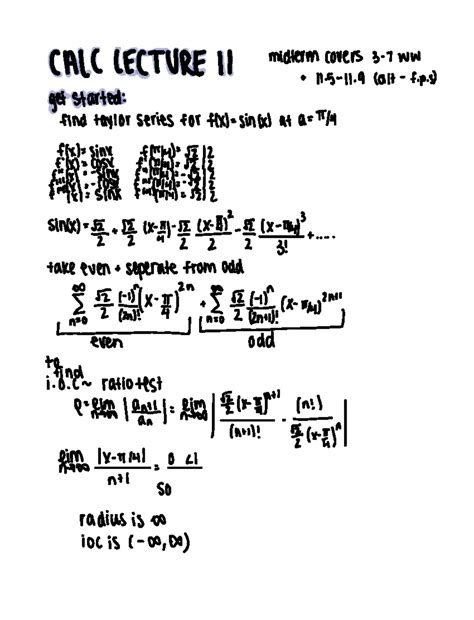 CALC LECTURE 11
midterm covers 3-7 ww
+ 11.5-11.9 (alt - f.p.s)
get started:
find taylor series for f(x)=sin(x) at a=π/4
f(x)= sinx f(π/4)= √2/2
f'(x)= cosx f'(π/4)= √2/2
f''(x)= -sinx f''(π/4)= -√2/2
f'''(x)= -cosx f'''(π/4)= -√2/2
f''''(x)= sinx f''''(π/4)= √2/2
sin(x)= √2/2 + √2/2 (x-π/4) - √2/2 (x-π/4)²/2 - √2/2 (x-π/4)³/3! + .....
take even + seperate from odd
∞∑n=0 √2/2 (-1)ⁿ/(2n)! (x-π/4)²ⁿ + ∞∑n=0 √2/2 (-1)ⁿ/(2n+1)! (x-π/4)²ⁿ⁺¹
even odd
to find
i.o.c~ ratio test
ρ= lim n→∞ |aₙ₊₁/aₙ| = lim n→∞ | √2/2 (x-π/4)ⁿ⁺¹/(n+1)! - (n!)/√2/2 (x-π/4)ⁿ |
lim n→∞ |x-π/4|/n+1 = 0 <1
so
radius is ∞
ioc is (-∞,∞)